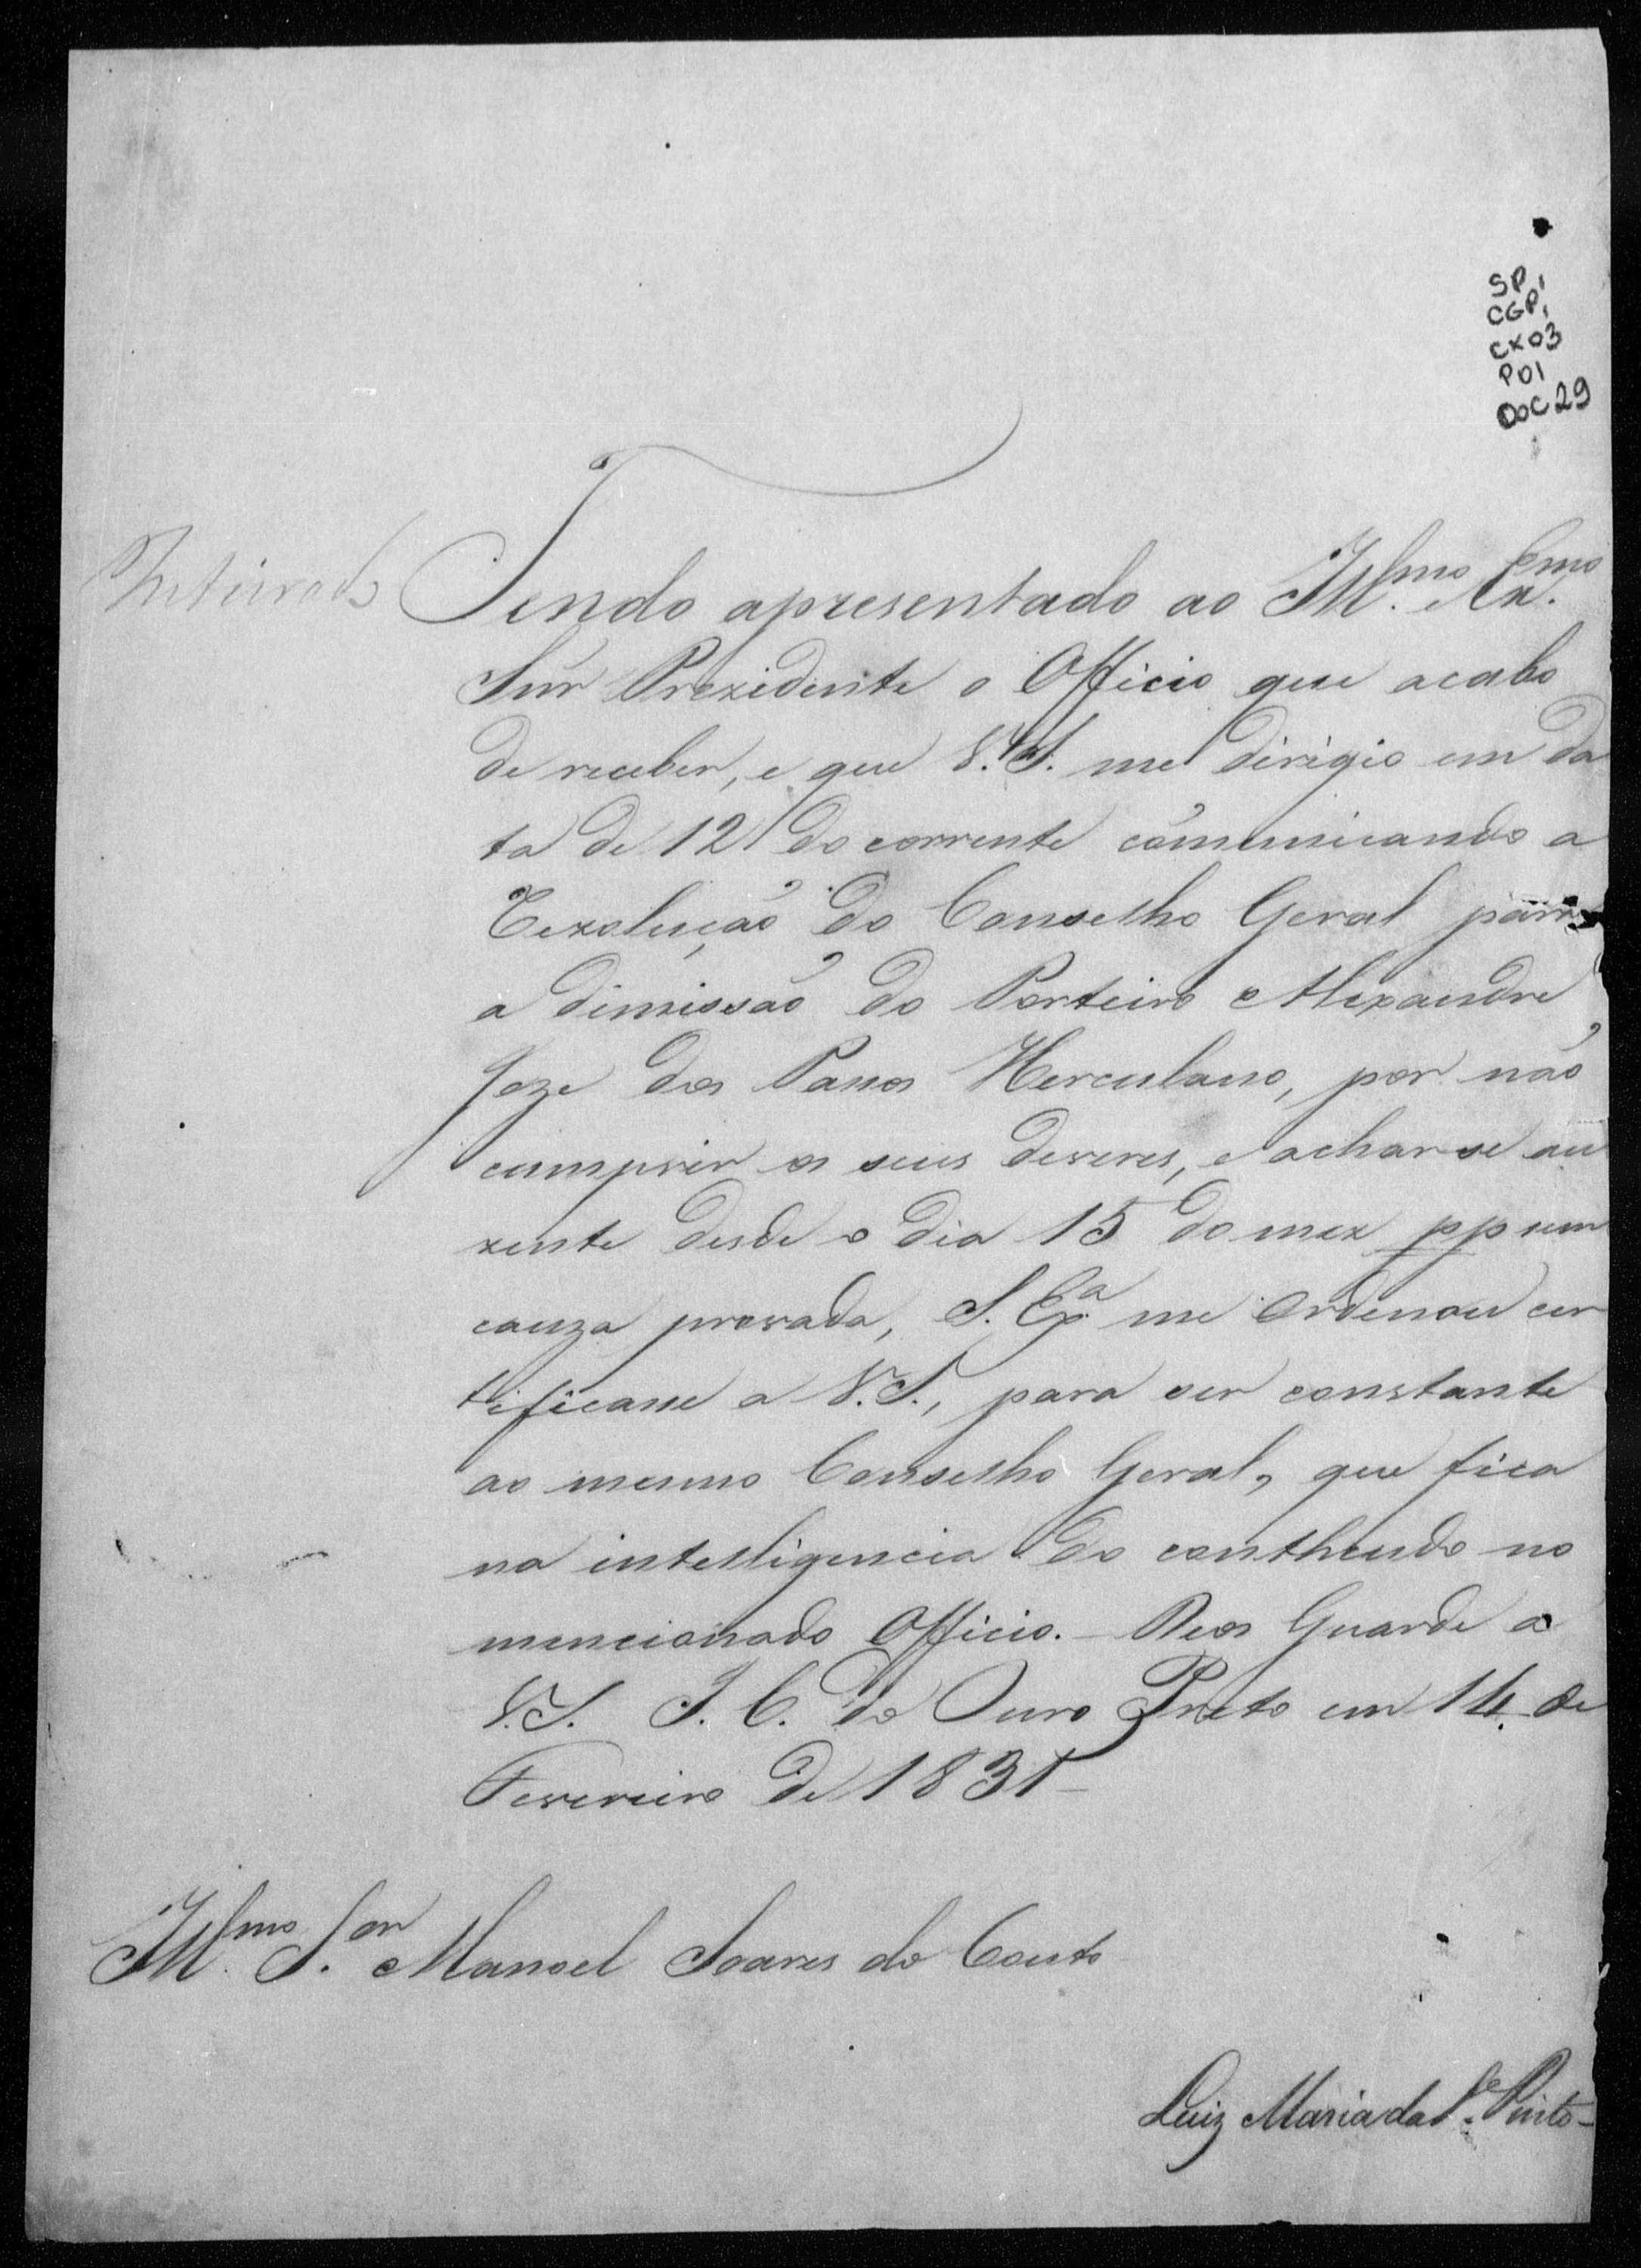 SP,
CGP,
CX03
P01
DOC 29
Inteirado
Tendo apresentado ao Ill.mo e Ex.mo
Snr Prezidente o Officio que acabo
de receber, e que V.S. me dirigio em da
ta de 12 do corrente cõmunicando a
Rezolução do Conselho Geral para
a dimissão do Porteiro Alexandre
Joze dos Passos Herculano, por não
cumprir os seus deveres, e achar-se au
zente desde o dia 15 do mez pp sem
cauza provada, S. Ex.a me Ordenou cer
tificasse a V.S., para ser constante
ao mesmo Conselho Geral, que fica
na intelligencia do contheudo no
mencionado Officio. - Deos Guarde a
V.S. I. C. do Ouro Preto em 14 de
Fevereiro de 1831 -
Ill.mo S.or Manoel Soares do Couto
Luiz Maria da S.a Pinto -